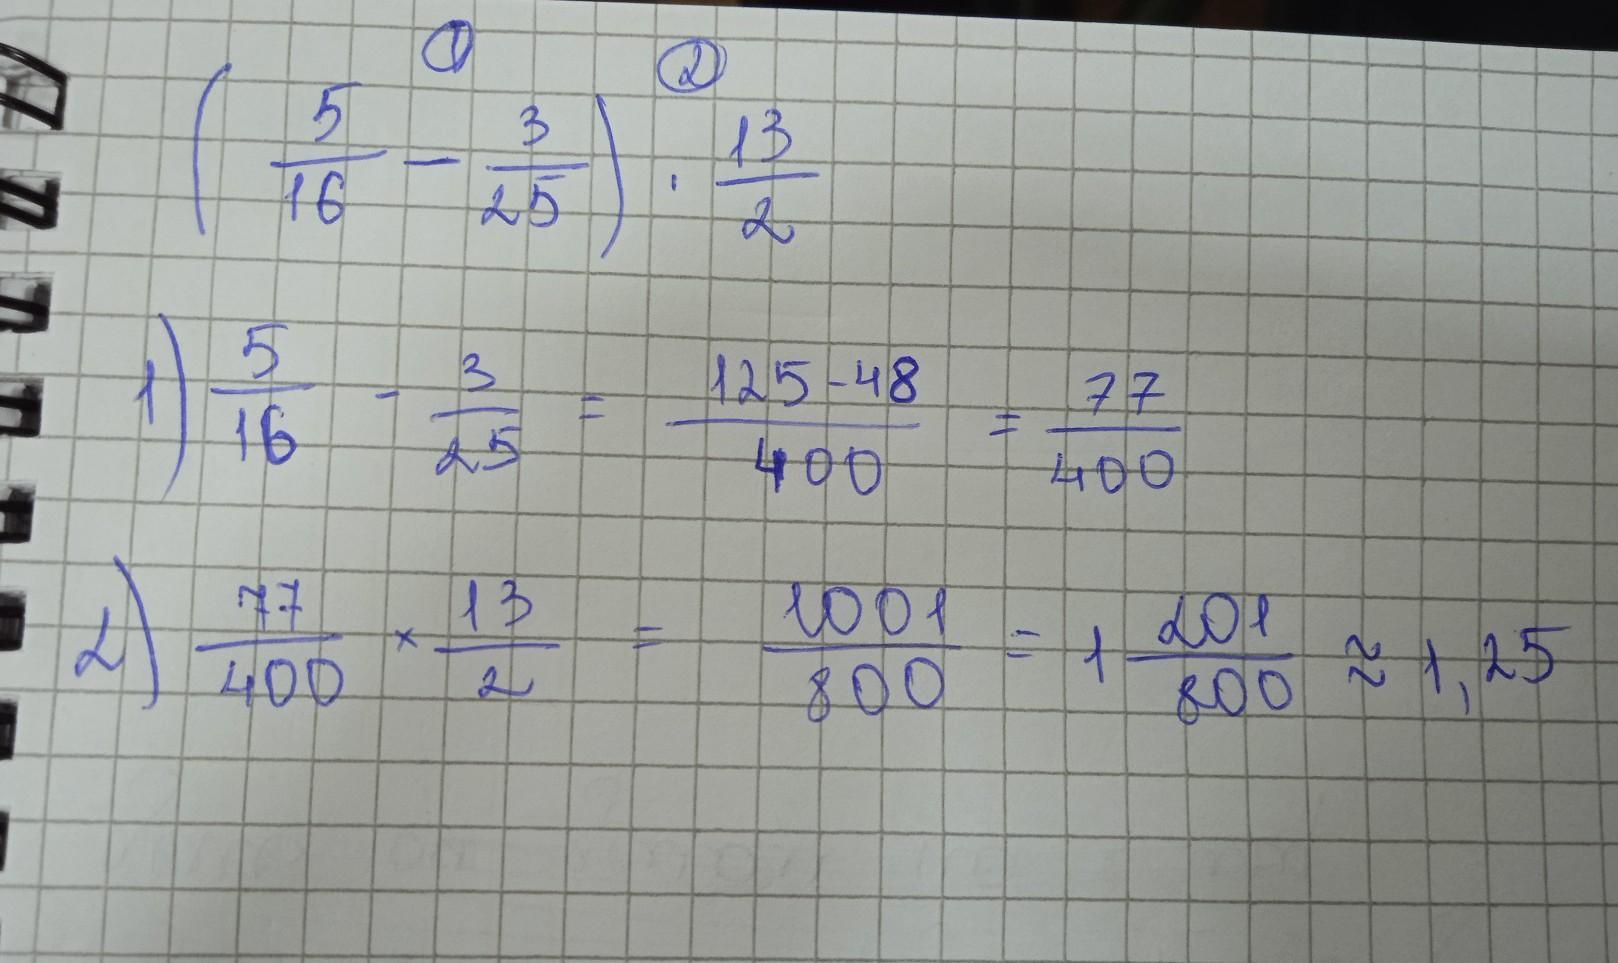 ① ②
(5/16 - 3/25) · 13/2
1) 5/16 - 3/25 = 125-48/400 = 77/400
2) 77/400 × 13/2 = 1001/800 = 1 201/800 ≈ 1,25